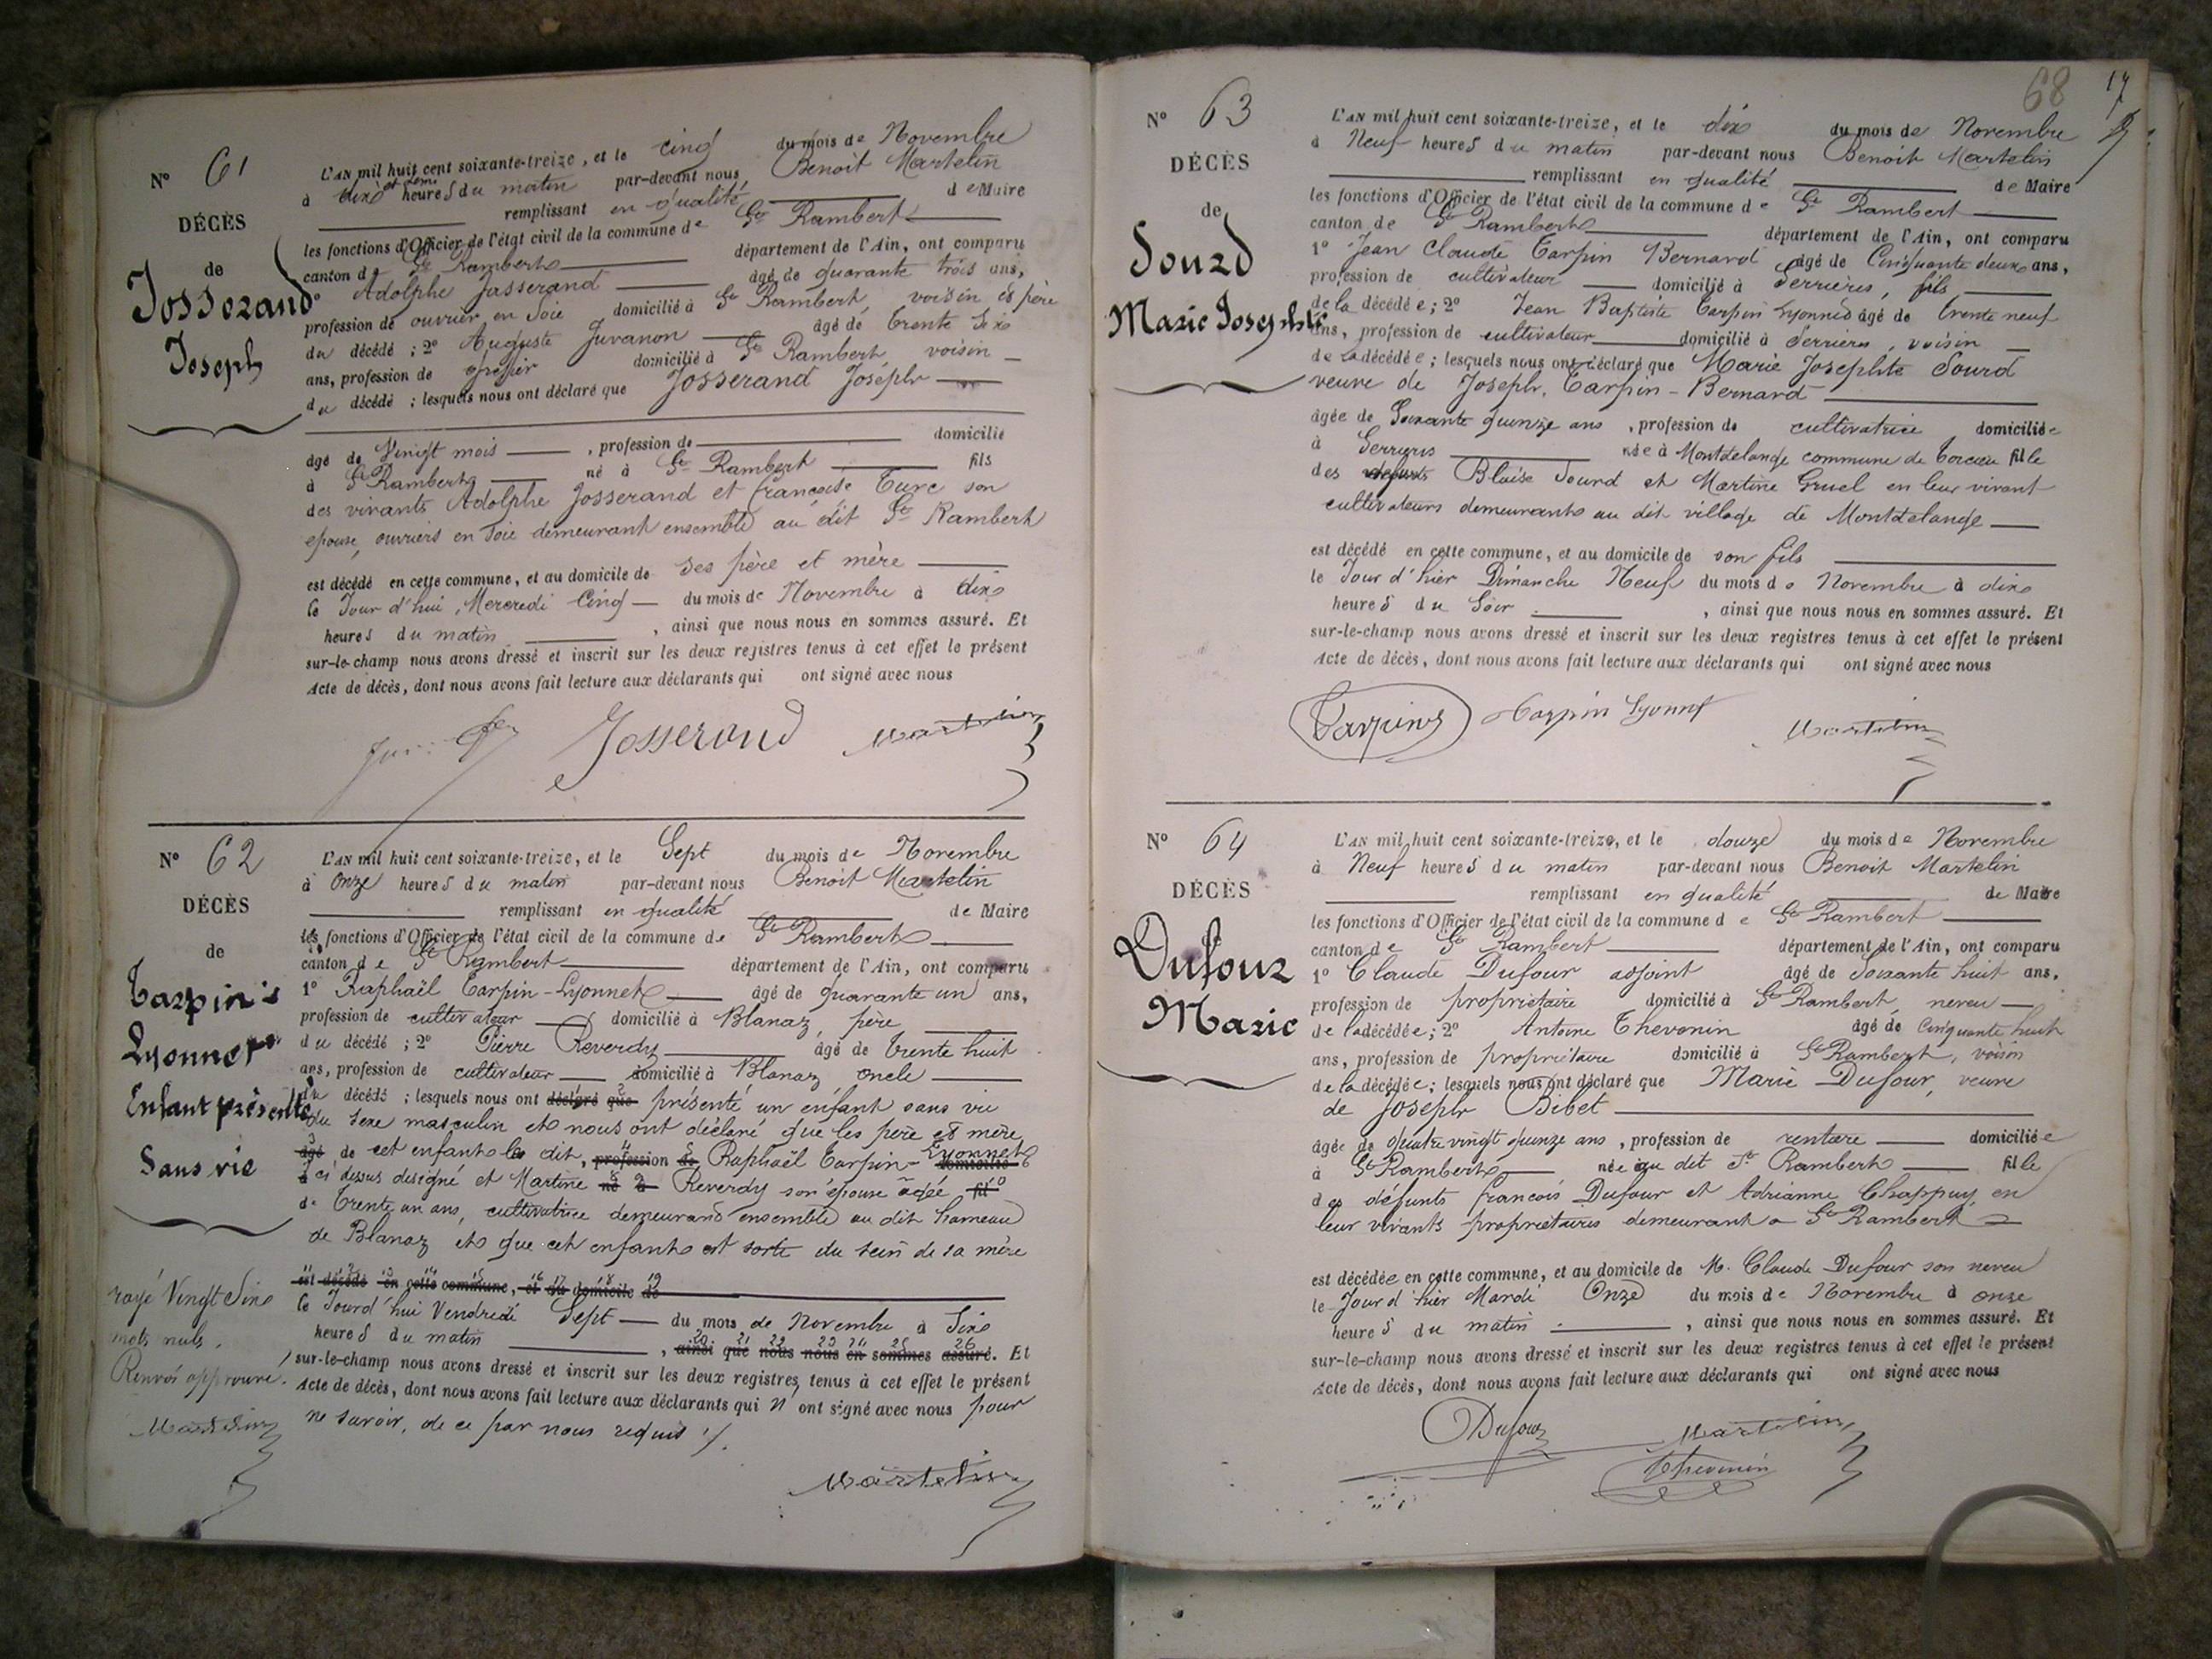 N° 61
DÉCÈS
de
Josserand
Joseph
L'AN mil huit cent soixante-treize, et le cinq du mois de Novembre
à dix et demi heures du matin par-devant nous Benoit Martelin
remplissant en qualité de Maire
les fonctions d'Officier de l'état civil de la commune de St Rambert
canton de St Rambert département de l'Ain, ont comparu
1° Adolphe Josserand âgé de quarante trois ans,
profession de ouvrier en soie domicilié à St Rambert, voisin et père
du décédé ; 2° Auguste Juvanon âgé de trente six
ans, profession de domicilié à St Rambert, voisin
du décédé ; lesquels nous ont déclaré que Josserand Joseph
âgé de Vingt mois , profession de domicilié
à St Rambert né à St Rambert fils
des vivants Adolphe Josserand et françoise Turc son
epouse, ouvriers en soie demeurant ensemble au dit St Rambert
est décédé en cette commune, et au domicile de ses père et mère
le Jour d'hui, Mercredi Cinq du mois de Novembre à dix
heures du matin , ainsi que nous nous en sommes assuré. Et
sur-le-champ nous avons dressé et inscrit sur les deux registres tenus à cet effet le présent
Acte de décès, dont nous avons fait lecture aux déclarants qui ont signé avec nous
Josserand Martelin
N° 62
DÉCÈS
de
Tarpin
Lyonnet
Enfant présenté
Sans vie
L'AN mil huit cent soixante-treize, et le Sept du mois de Novembre
à Onze heures du matin par-devant nous Benoit Martelin
remplissant en qualité de Maire
les fonctions d'Officier de l'état civil de la commune de St Rambert
canton de St Rambert département de l'Ain, ont comparu
1° Raphaël Tarpin-Lyonnet âgé de quarante un ans,
profession de cultivateur domicilié à Blanaz, père
du décédé ; 2° Pierre Reverdy âgé de trente huit
ans, profession de cultivateur domicilié à Blanaz oncle
du décédé ; lesquels nous ont déclaré que présenté un enfant sans vie
du sexe masculin et nous ont déclaré que les père et mère
âgé de cet enfant le dit, profession de Raphaël Tarpin-Lyonnet domicilié
à ci dessus designé et Martine né à Reverdy son épouse âgée fil
de trente un ans, cultivatrice demeurand ensemble au dit hameau
de Blanaz et que cet enfant est sorti du sein de sa mère
est décédé en cette commune, et au domicile de
le Jourd'hui Vendredi Sept du mois de Novembre à Six
heures du matin , ainsi que nous nous en sommes assuré. Et
sur-le-champ nous avons dressé et inscrit sur les deux registres tenus à cet effet le présent
Acte de décès, dont nous avons fait lecture aux déclarants qui n'ont signé avec nous pour
ne savoir, de ce par nous requis
rayé Vingt six
mots nuls.
Renvoi approuvé.
Martelin
Martelin
68 17
N° 63
DÉCÈS
de
Sourd
Marie Josephte
L'AN mil huit cent soixante-treize, et le dix du mois de Novembre
à Neuf heures du matin par-devant nous Benoit Martelin
remplissant en qualité de Maire
les fonctions d'Officier de l'état civil de la commune de St Rambert
canton de St Rambert département de l'Ain, ont comparu
1° Jean Claude Tarpin Bernard âgé de Cinquante deux ans,
profession de cultivateur domicilié à Serrières, fils
de la décédée; 2° Jean Baptiste Tarpin Lyonnet âgé de trente neuf
ans, profession de cultivateur domicilié à Serrières, voisin
de la décédée ; lesquels nous ont déclaré que Marie Josephte Sourd
veuve de Joseph Tarpin-Bernard
âgée de Soixante quinze ans , profession de cultivatrice domiciliée
à Serrières née à Montdelange commune de Torcieu fille
des defunts Blaise Sourd et Martine Gruel en leur vivant
cultivateurs demeurants au dit village de Montdelange
est décédé en cette commune, et au domicile de son fils
le Jour d'hier Dimanche Neuf du mois de Novembre à dix
heures du Soir , ainsi que nous nous en sommes assuré. Et
sur-le-champ nous avons dressé et inscrit sur les deux registres tenus à cet effet le présent
Acte de décès, dont nous avons fait lecture aux déclarants qui ont signé avec nous
Tarpin Tarpin Lyonnet Martelin
N° 64
DÉCÈS
de
Dufour
Marie
L'AN mil huit cent soixante-treize, et le douze du mois de Novembre
à Neuf heures du matin par-devant nous Benoit Martelin
remplissant en qualité de Maire
les fonctions d'Officier de l'état civil de la commune de St Rambert
canton de St Rambert département de l'Ain, ont comparu
1° Claude Dufour adjoint âgé de Soixante huit ans,
profession de propriétaire domicilié à St Rambert, neveu
de la décédée; 2° Antoine Thevenin âgé de Cinquante huit
ans, profession de propriétaire domicilié à St Rambert, voisin
de la décédée; lesquels nous ont déclaré que Marie Dufour, veuve
de Joseph Bibet
âgée de quatre vingt quinze ans , profession de rentière domiciliée
à St Rambert née au dit St Rambert fille
des défunts francois Dufour et Adrianne Chappuy en
leur vivants propriétaires demeurant a St Rambert
est décédée en cette commune, et au domicile de M. Claude Dufour son neveu
le Jour d'hier Mardi Onze du mois de Novembre à onze
heures du matin , ainsi que nous nous en sommes assuré. Et
sur-le-champ nous avons dressé et inscrit sur les deux registres tenus à cet effet le présent
Acte de décès, dont nous avons fait lecture aux déclarants qui ont signé avec nous
Dufour Martelin
Thevenin